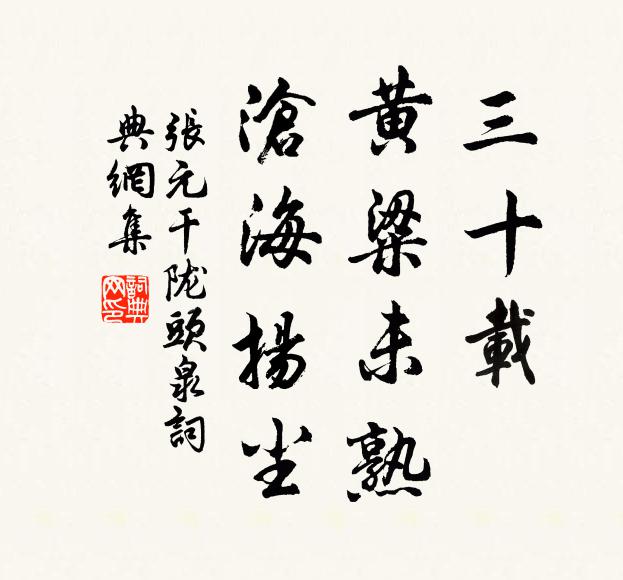 三十載
黄粱未熟
滄海揚尘
張元干陇頭泉詞
典網集
詞典
网印